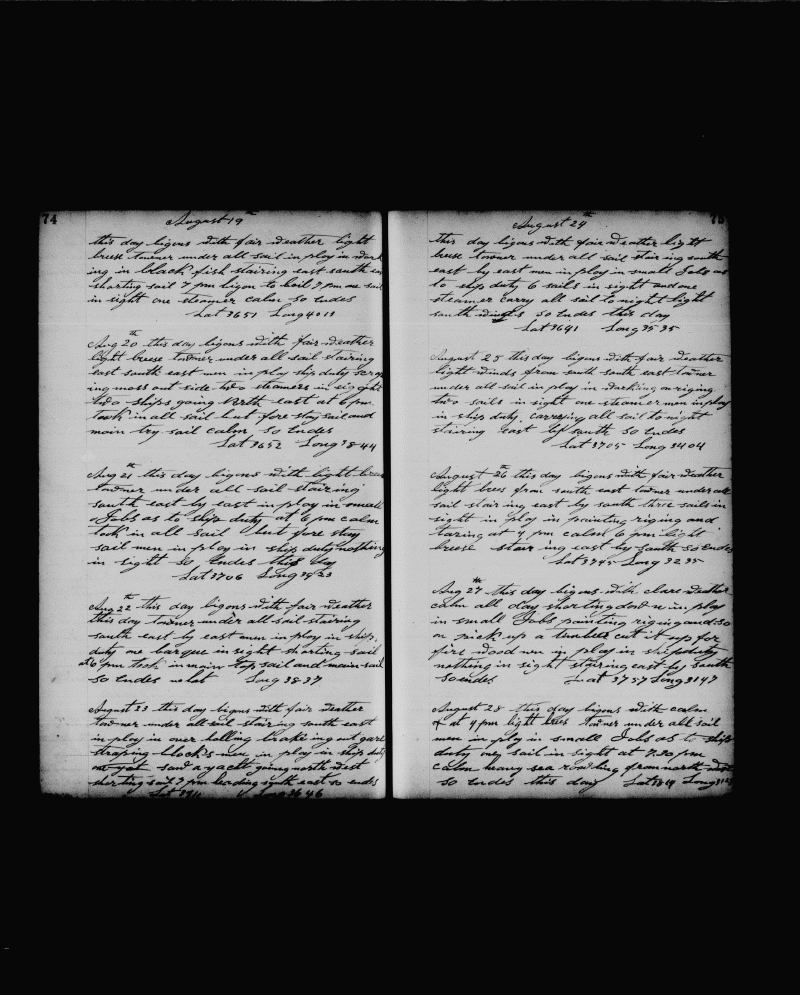 74
August 19th
this day bigons with fair weather light
breese towner under all sail in ploy in work
ing in black fish stairing east south
shorting sail 7 pm bigon to boil 9 pm one sail
in sight one steamer calm so Endes
Lat 3651 Long 4011
Aug 20th this day bigons with fair weather
light breese towner under all sail stairing
east south east men in ploy ship duty scrap
ing moss out side two steamers in sight
two ships going North east at 6 pm
took in all sail but fore stay sail and
main try sail calm So Endes
Lat 3652 Long 3844
Aug 21th this day bigons with light
towner under all sail stairing
south east by east in ploy in small
Jobs as to ship duty at 6 pm calm
took in all sail but fore stay
sail men in ploy in ship duty nothing
in sight So Endes this day
Lat 3706 Long
Aug 22th this day bigons with fair weather
this day towner under all sail stairing
south east by east men in ploy in ship
duty one barque in sight shorting sail
at 6 pm took in main top sail and main sail
so Endes no lat Long 3837
August 23 this day bigons with fair weather
towner under all sail stairing south east
in ploy in over holling brake ing out gear
straping blocks men in ploy in ship duty
saw a yacht going north west
shorting sail 7 pm heading south east so endes
Lat Long 3646
75
August 24th
this day bigons with fair weather light
breese towner under all sail stairing south
east by east men in ploy in small Jobs as
to ship duty 6 sails in sight and one
steamer carry all sail to night light
south winds so Endes this day
Lat 3641 Long 3535
August 25 this day bigons with fair weather
light winds from south south east towner
under all sail in ploy in working on riging
two sails in sight one steamer men in ploy
in ship duty carreing all sail to night
stairing East by south so Endes
Lat 3705 Long 3404
August 26th this day bigons with fair weather
light brees from south east towner under all
sail stair ing east by south three sails in
sight in ploy in painting riging and
taring at 4 pm calm 6 pm light
breese stair ing east by south so Endes
Lat 3745 Long 3235
Aug 27th this day bigons with clare weather
calm all day shorting down in ploy
in small Jobs painting riging and so
on pick up a timber cut it up for
fire wood men in ploy in ship duty
nothing in sight stairing east by south
so endes Lat 3757 Long 3147
August 28 this day bigons with calm
& at 4 pm light brees towner under all sail
men in ploy in small Jobs as to ship
duty one sail in sight at 7.30 pm
calm heavy sea rowling from north west
so Endes this day Lat Long